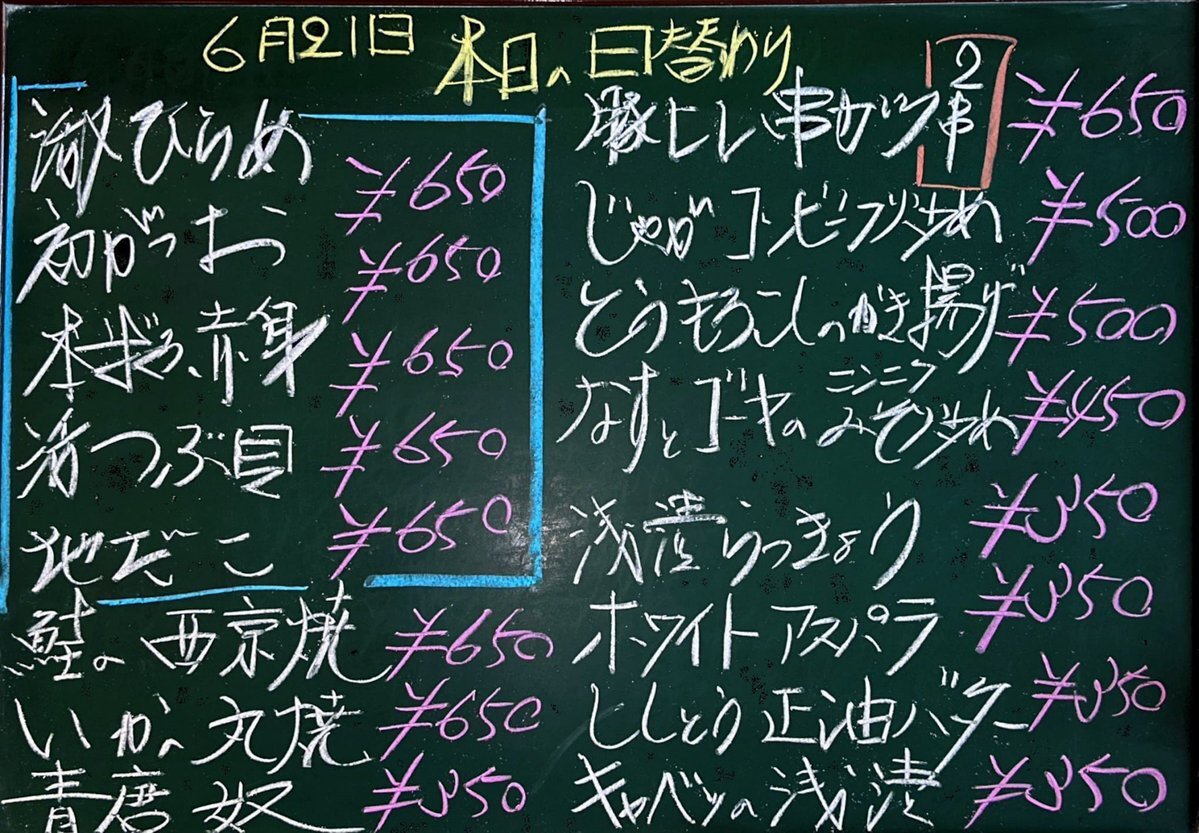 6月21日 本日の日替わり
激ひらめ ¥650
初がつお ¥650
本まぐろ赤身 ¥650
活つぶ貝 ¥650
地だこ ¥650
鮭の西京焼 ¥650
いかの丸焼 ¥650
青唐奴 ¥350
豚ヒレ串カツ 2串 ¥650
じゃがコンビーフ炒め ¥500
とうもろこしのかき揚げ ¥500
なすとゴーヤのニンニクみそ炒め ¥450
浅漬らっきょう ¥350
ホワイトアスパラ ¥350
ししとう正油バター ¥350
キャベツの浅漬 ¥350